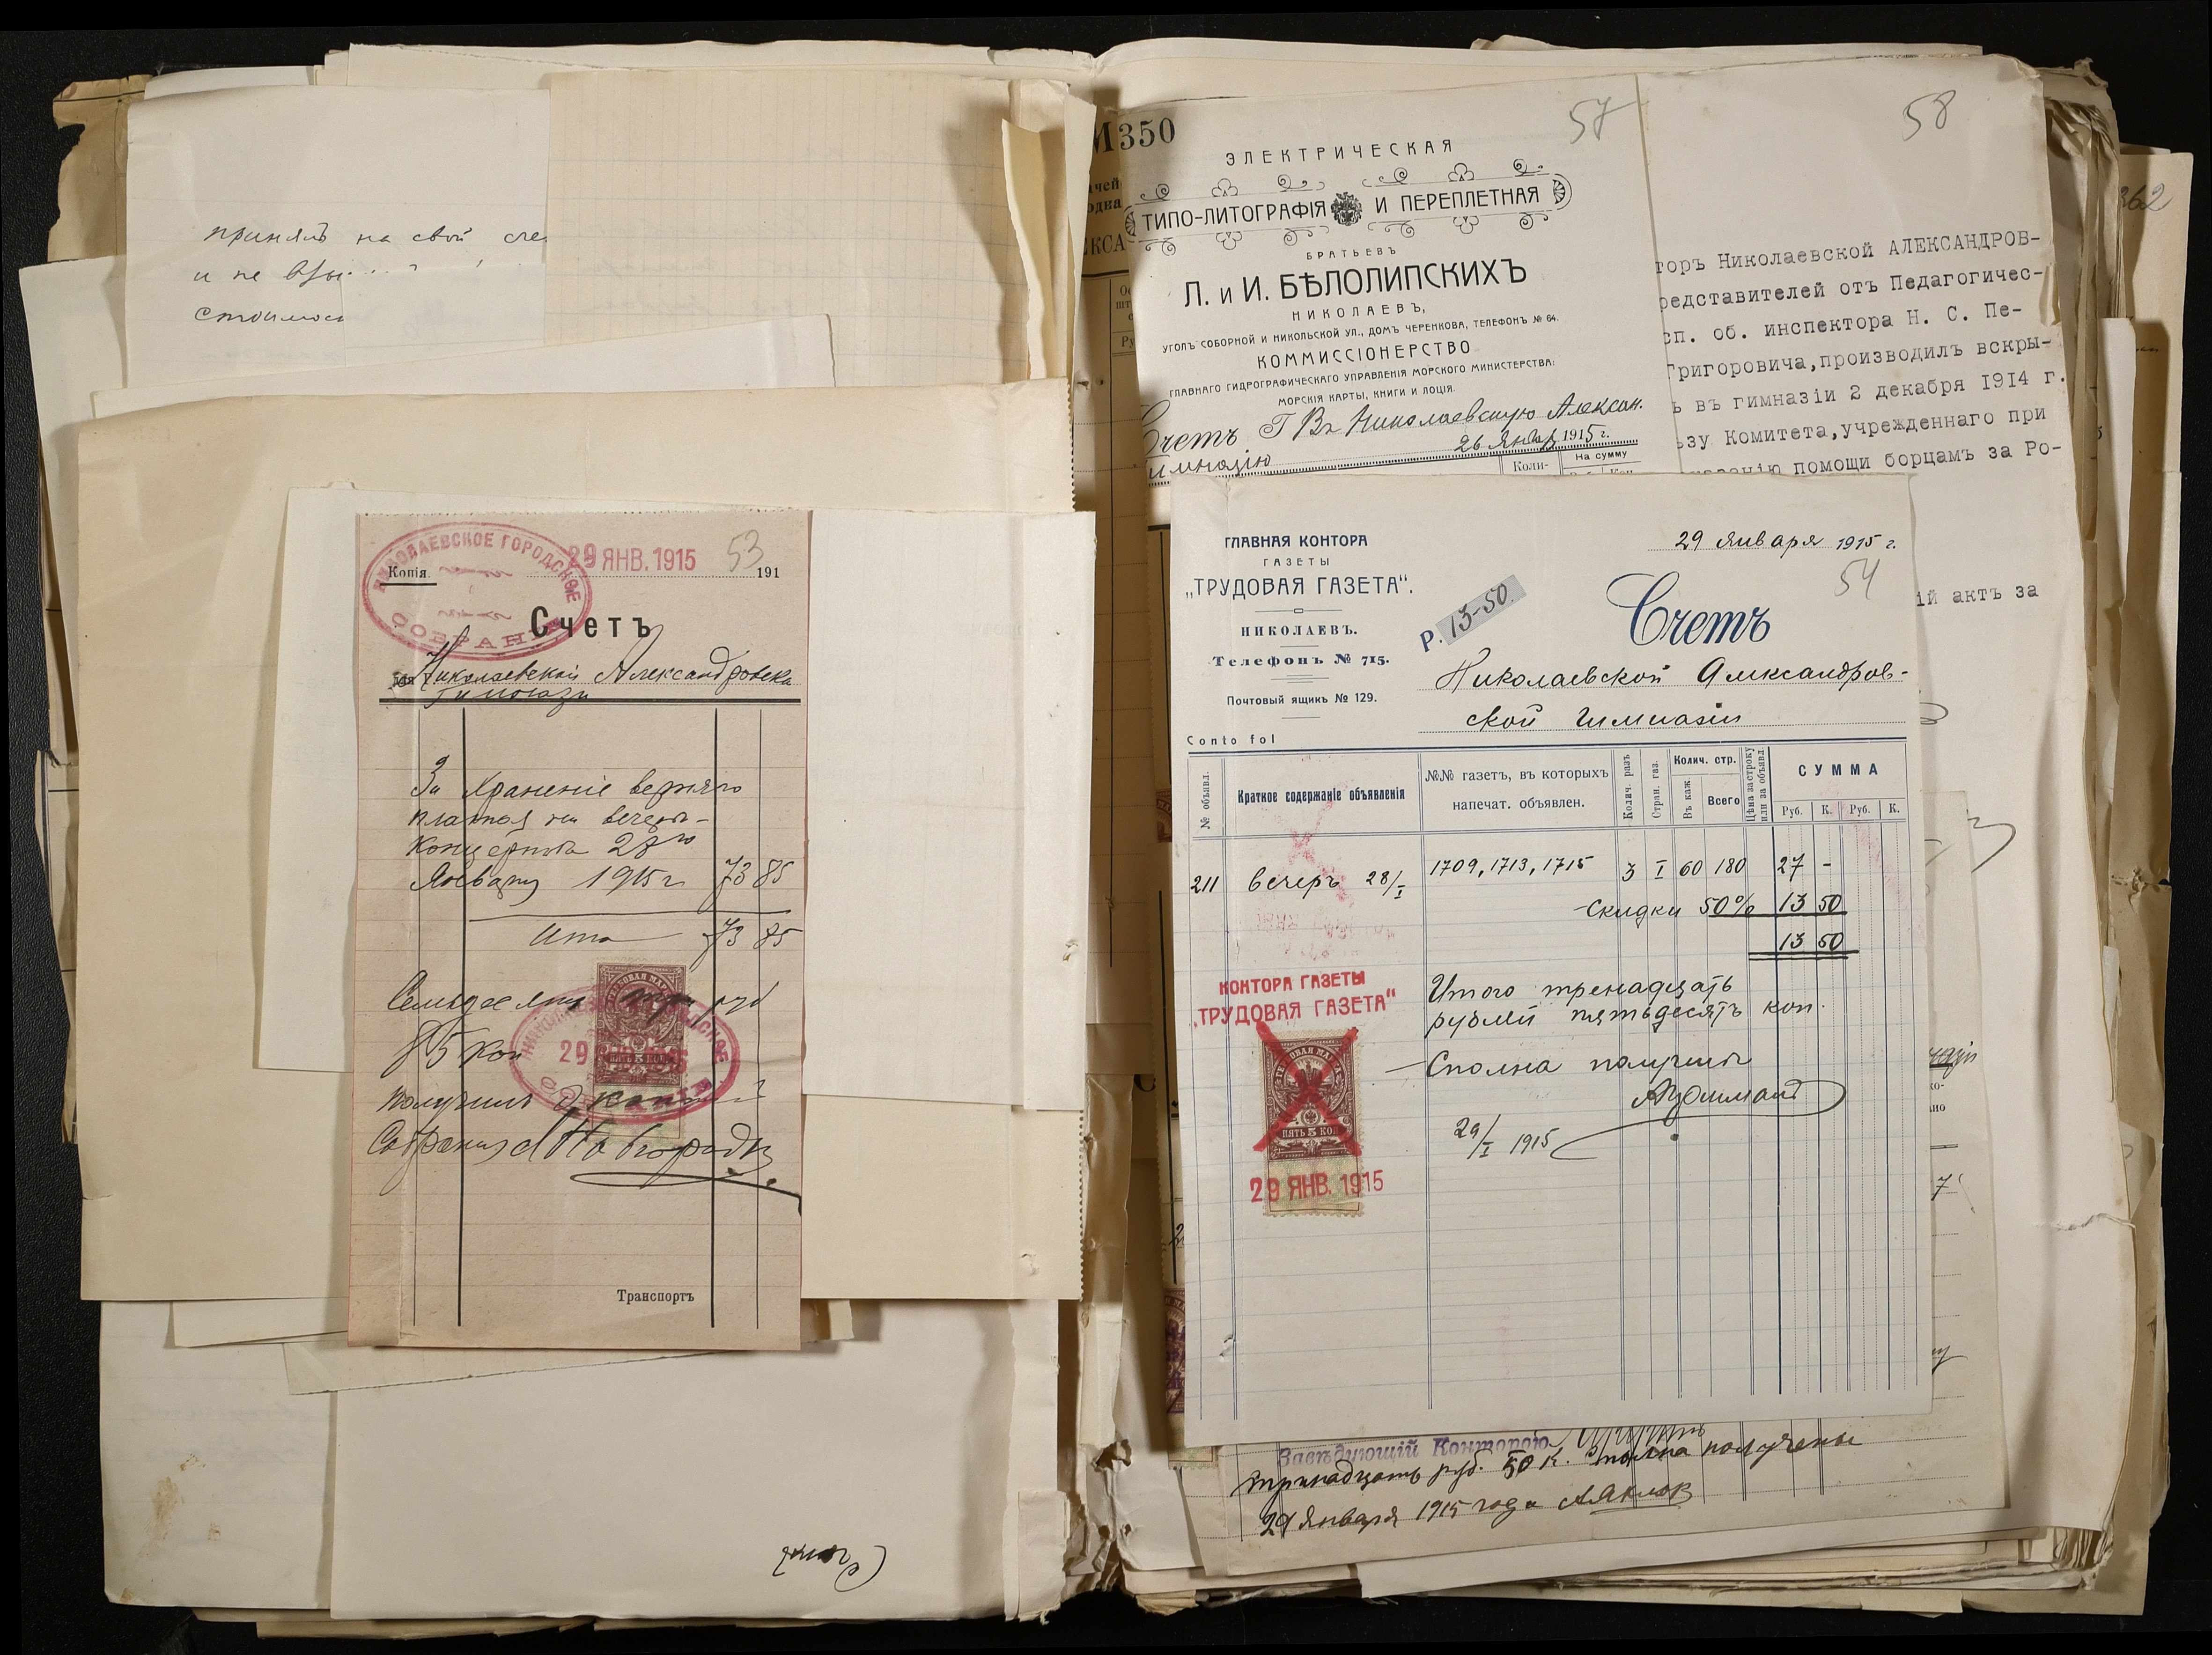 принялъ на свой сче
и не
стоимос
НИКОЛАЕВСКОЕ ГОРОДСКОЕ СОБРАНІЕ
29 ЯНВ. 1915
53
Копія.
191
Счетъ
Николаевской Александровска
Гимнази
За храненіе верхняго
платья на вечеръ-
концерта 28го
Января 1915 г. 73 85
Итого 73 85
Семьдесят три руб
85 коп
29
ПЯТЬ 5 КОП
получилъ
Собрания
Транспортъ
Счетъ
М350
57
ЭЛЕКТРИЧЕСКАЯ
ТИПО-ЛИТОГРАФІЯ И ПЕРЕПЛЕТНАЯ
БРАТЬЕВЪ
Л. и И. БѢЛОЛИПСКИХЪ
НИКОЛАЕВЪ,
УГОЛЪ СОБОРНОЙ И НИКОЛЬСКОЙ УЛ., ДОМЪ ЧЕРЕНКОВА, ТЕЛЕФОНЪ № 64.
КОММИССІОНЕРСТВО
ГЛАВНАГО ГИДРОГРАФИЧЕСКАГО УПРАВЛЕНІЯ МОРСКОГО МИНИСТЕРСТВА:
МОРСКІЯ КАРТЫ, КНИГИ И ЛОЦІЯ.
Счетъ Въ Николаевскую Алексан.
26 Янв 1915 г.
имназію
Коли-
На сумму
58
торъ Николаевской АЛЕКСАНДРОВ-
редставителей отъ Педагогичес-
сп. об. инспектора Н. С. Пе-
Григоровича,производилъ вскры-
ь въ гимназіи 2 декабря 1914 г.
ьзу Комитета,учрежденнаго при
казанію помощи борцамъ за Ро-
ій актъ за
362
ГЛАВНАЯ КОНТОРА
ГАЗЕТЫ
„ТРУДОВАЯ ГАЗЕТА“.
НИКОЛАЕВЪ.
Телефонъ № 715.
Почтовый ящикъ № 129.
Conto fol
29 Января 1915 г.
54
Р. 13-50.
Счетъ
Николаевской Александров-
ской Гимназіи
№ объявл.
Краткое содержаніе объявленія
№№ газетъ, въ которыхъ напечат. объявлен.
Колич. разъ
Стран. газ.
Колич. стр.
Въ каж
Всего
Цѣна за строку или за объявл.
СУММА
Руб. К. Руб. К.
211 вечеръ 28/I 1709, 1713, 1715 3 I 60 180 27 -
-Скидки 50% 13 50
13 50
Итого тренадцать
рублей пятьдесятъ коп.
КОНТОРА ГАЗЕТЫ
„ТРУДОВАЯ ГАЗЕТА“
ПЯТЬ 5 КОП
29 ЯНВ. 1915
-Сполна получилъ
29/I 1915
Завѣдующій Конторою
тринадцать руб. 50 к. сполна получены
29 Января 1915 года